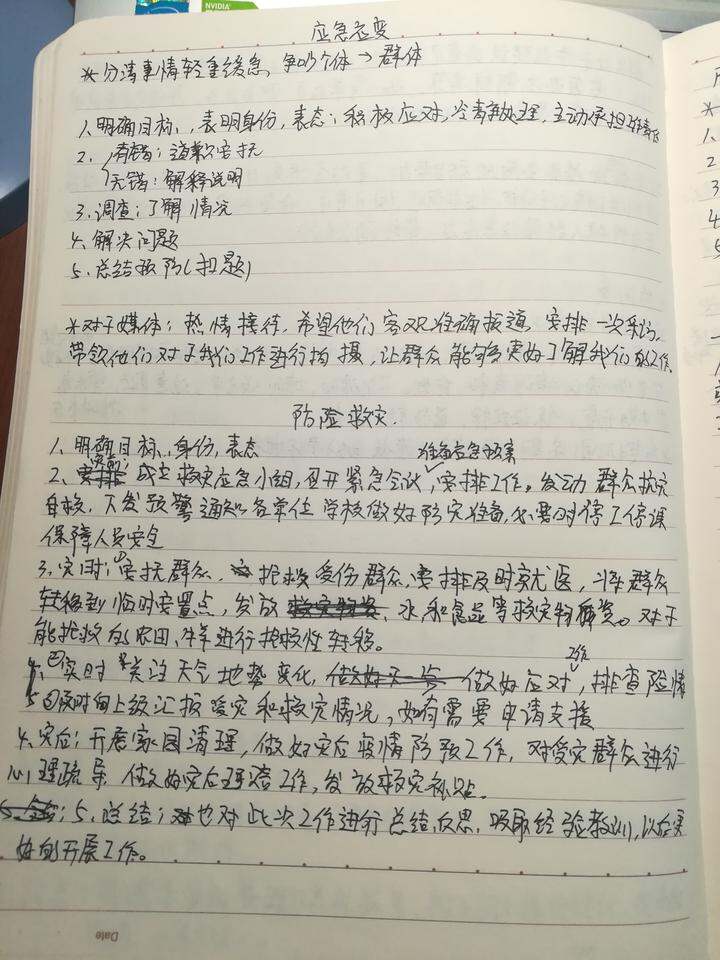 NVIDIA
应急应变
*分清事情轻重缓急,争吵个体→群体
1、明确目标,表明身份,表态:积极应对,冷静处理,主动承担工作责任
2、有错:道歉安抚
无错:解释说明
3、调查:了解情况
4、解决问题
5、总结预防(扣题)
*对于媒体:热情接待,希望他们客观准确报道,安排一次采访,
带领他们对于我们工作进行拍摄,让群众能够更好了解我们的工作。
防险救灾.
1、明确目标、身份,表态
准备应急预案
2、灾前:成立救灾应急小组,召开紧急会议,安排工作。发动群众抗灾
自救,下发预警通知,各单位学校做好防灾准备,必要时停工停课
保障人员安全
3、灾时:①安抚群众,抢救受伤群众,安排及时就医,将群众
转移到临时安置点,发放水和食品等救灾物资。对于
能抢救的农田、牛羊进行抢救性转移。
②实时关注天气地势变化,做好应对工作,排查险情
③及时向上级汇报受灾和救灾情况,如有需要申请支援
4、灾后:开展家园清理,做好灾后疫情防预工作,对受灾群众进行
心理疏导,做好灾后工作,发放救灾补贴。
5、总结:也对此次工作进行总结反思,吸取经验教训,以后更
好的开展工作。
Date
*
1
2
3
4
5